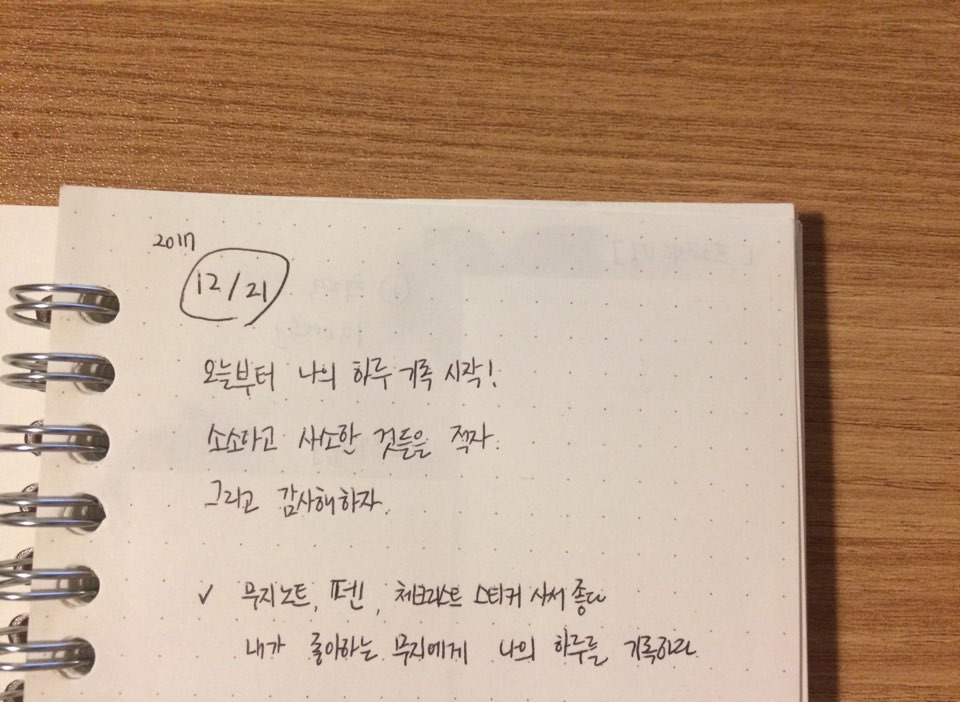 2017
12/21
오늘부터 나의 하루 기록 시작!
소소하고 사소한 것들을 적자.
그리고 감사해하자.
✓ 무지노트, 펜, 체크리스트 스티커 사서 좋다
내가 좋아하는 무지에게 나의 하루를 기록하다